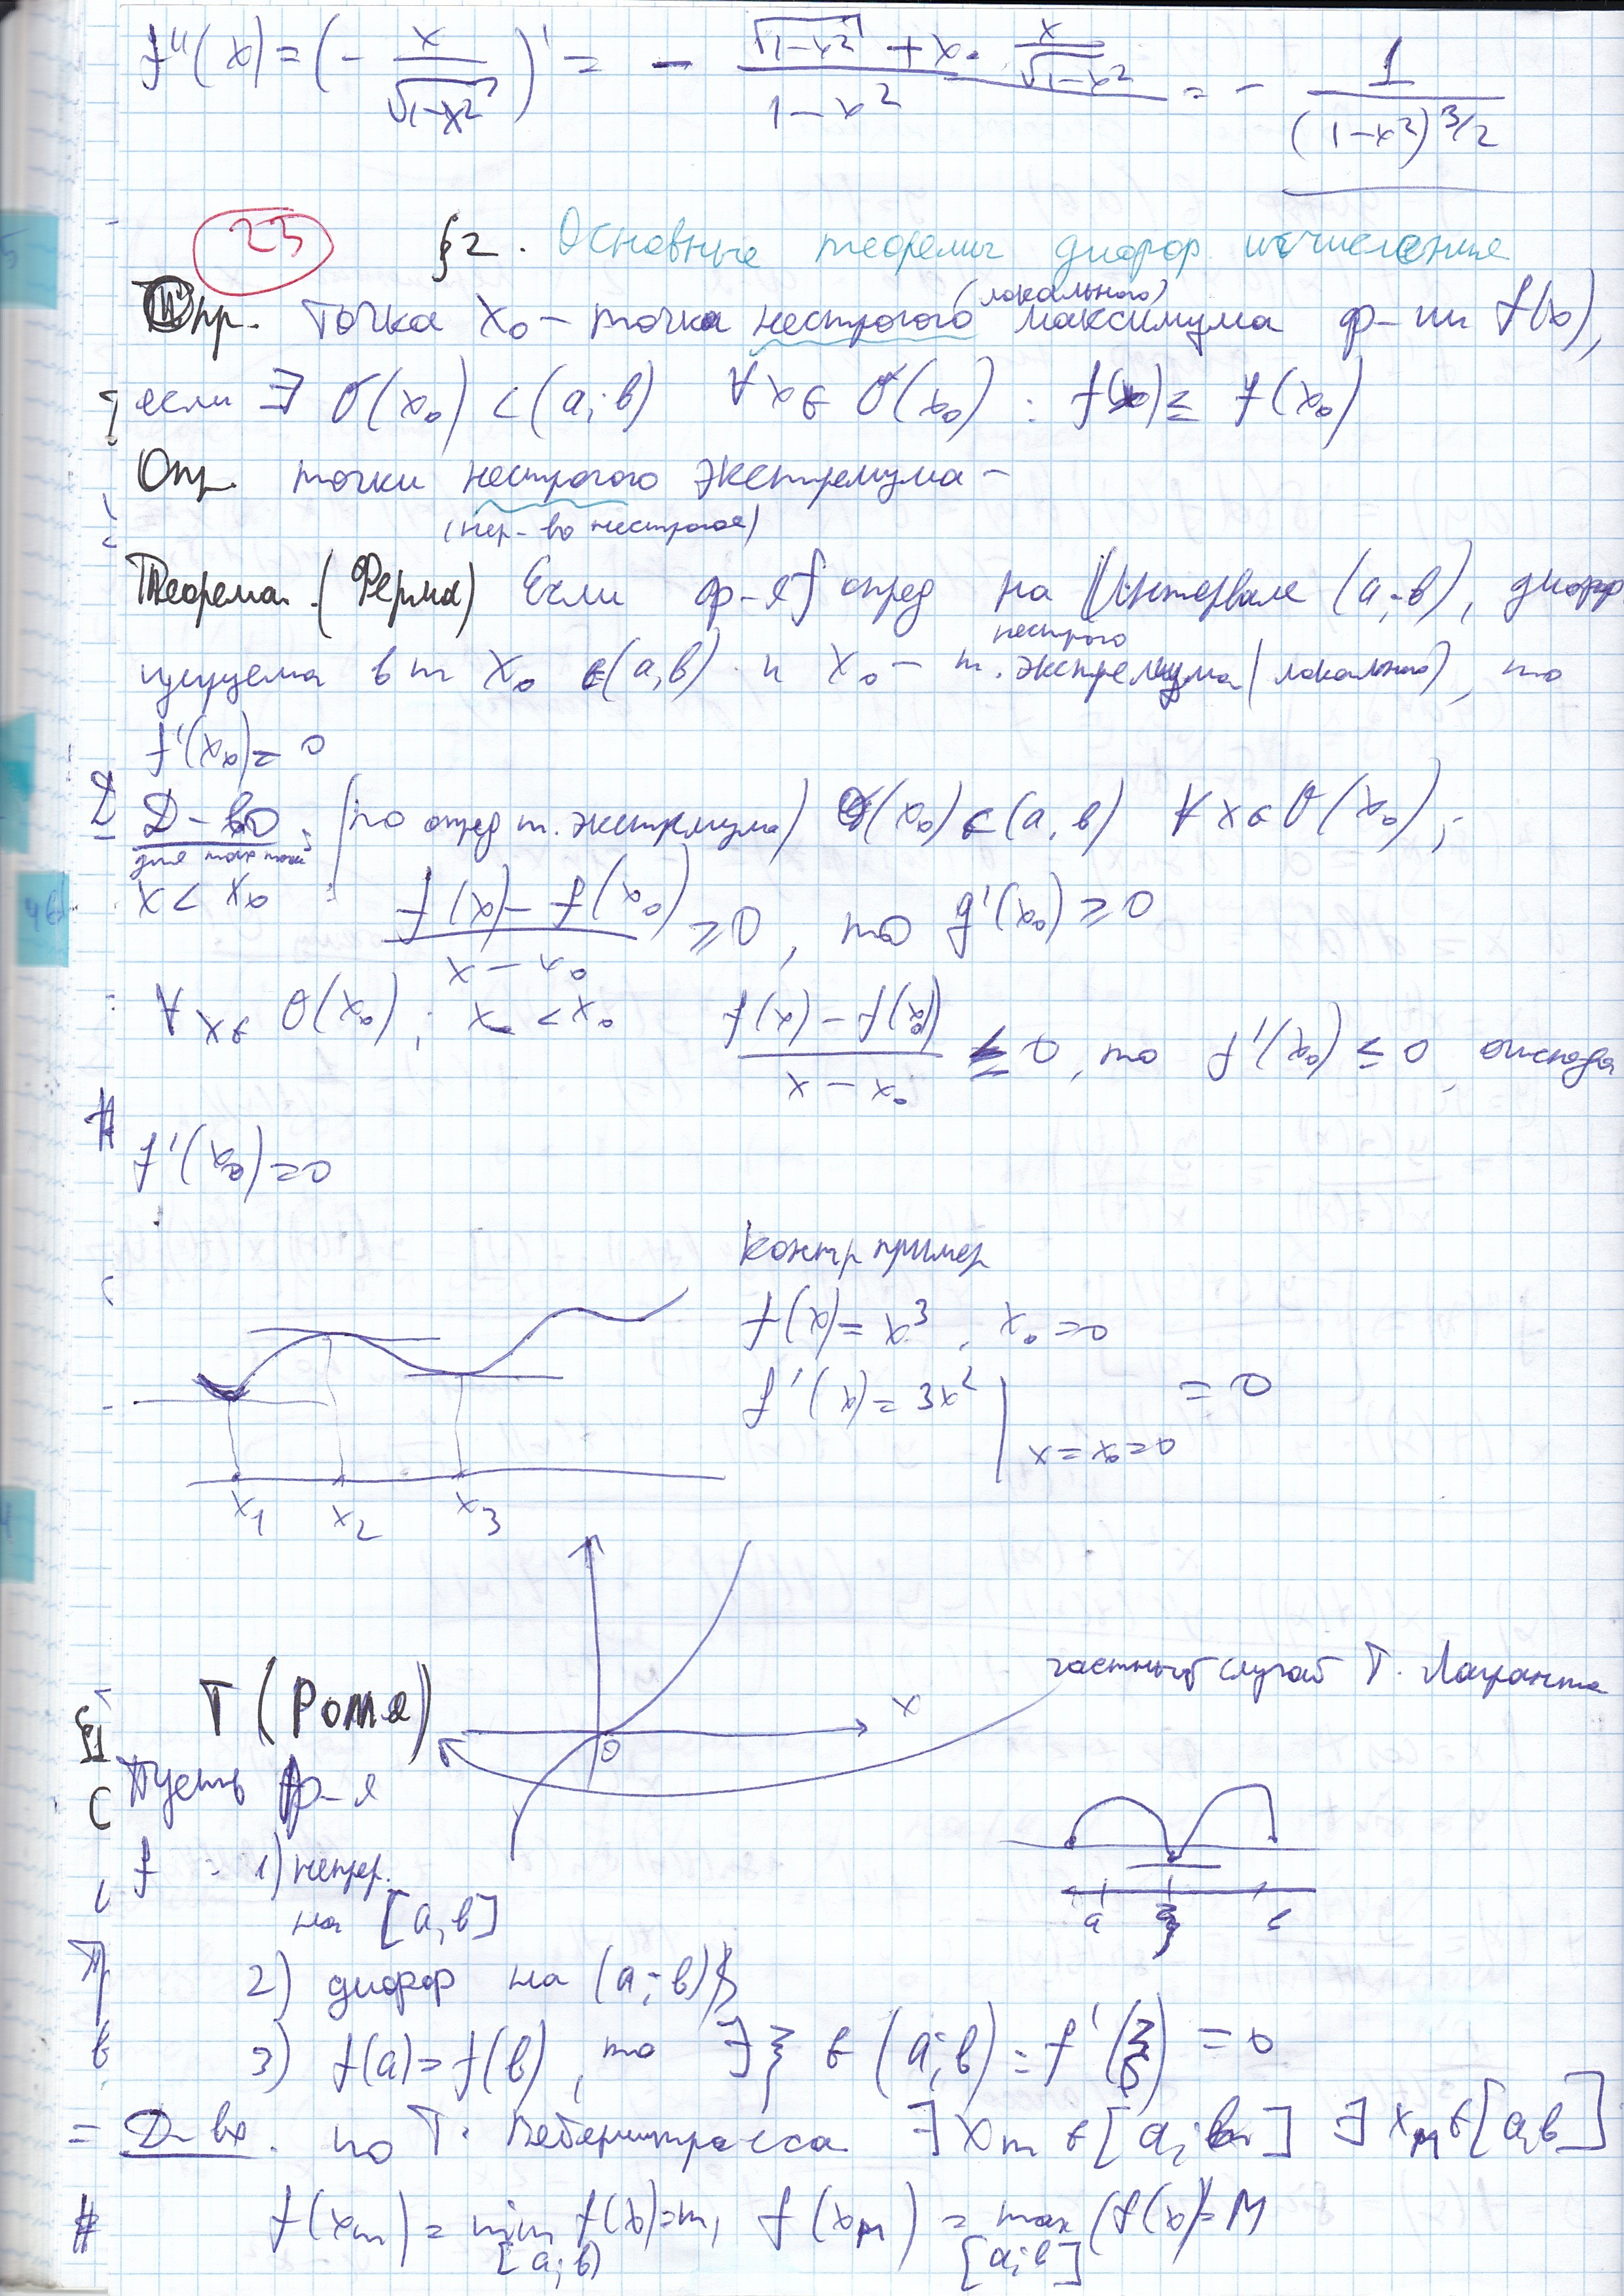 f''(x) = (- x/√(1-x²))' = - (√(1-x²) + x · x/√(1-x²))/(1-x²) = - 1/(1-x²)^{3/2}
23
§2. Основные теоремы дифф исчисления
Опр. Точка x₀ – точка нестрогого (локального) максимума ф-ии f(x),
если ∃ O(x₀) ⊂ (a; b) ∀x ∈ O(x₀) : f(x) ≤ f(x₀)
Опр. точки нестрогого экстремума –
(нер-во нестрогое)
Теорема. (Ферма) Если ф-я f опред на Интервале (a; b), дифф
цируема в т x₀ ∈ (a, b) и x₀ – т. нестрого экстремума (локального), то
f'(x₀) = 0
Д-во: (по опред т. экстремума) O(x₀) ⊂ (a, b) ∀x ∈ O(x₀);
для max точки
x < x₀ : (f(x) – f(x₀))/(x – x₀) ≥ 0, то f'(x₀) ≥ 0
∀x ∈ O(x₀); x < x₀ (f(x) – f(x₀))/(x – x₀) ≤ 0, то f'(x₀) ≤ 0, отсюда
f'(x₀) = 0
контр пример
f(x) = x³, x₀ = 0
f'(x) = 3x² | x = x₀ = 0 = 0
x₁ x₂ x₃
x
0
частный случай Т. Лагранжа
Т (Ролля)
Пусть ф-я
f : 1) непрер.
на [a, b]
a ξ b
2) дифф на (a; b)
3) f(a) = f(b), то ∃ ξ ∈ (a; b) : f'(ξ) = 0
Д-во. по Т. Вейерштрасса ∃ x_m ∈ [a; b] ∃ x_M ∈ [a, b]
f(x_m) = min f(x) = m, f(x_M) = max (f(x)) = M
[a; b) [a; b]